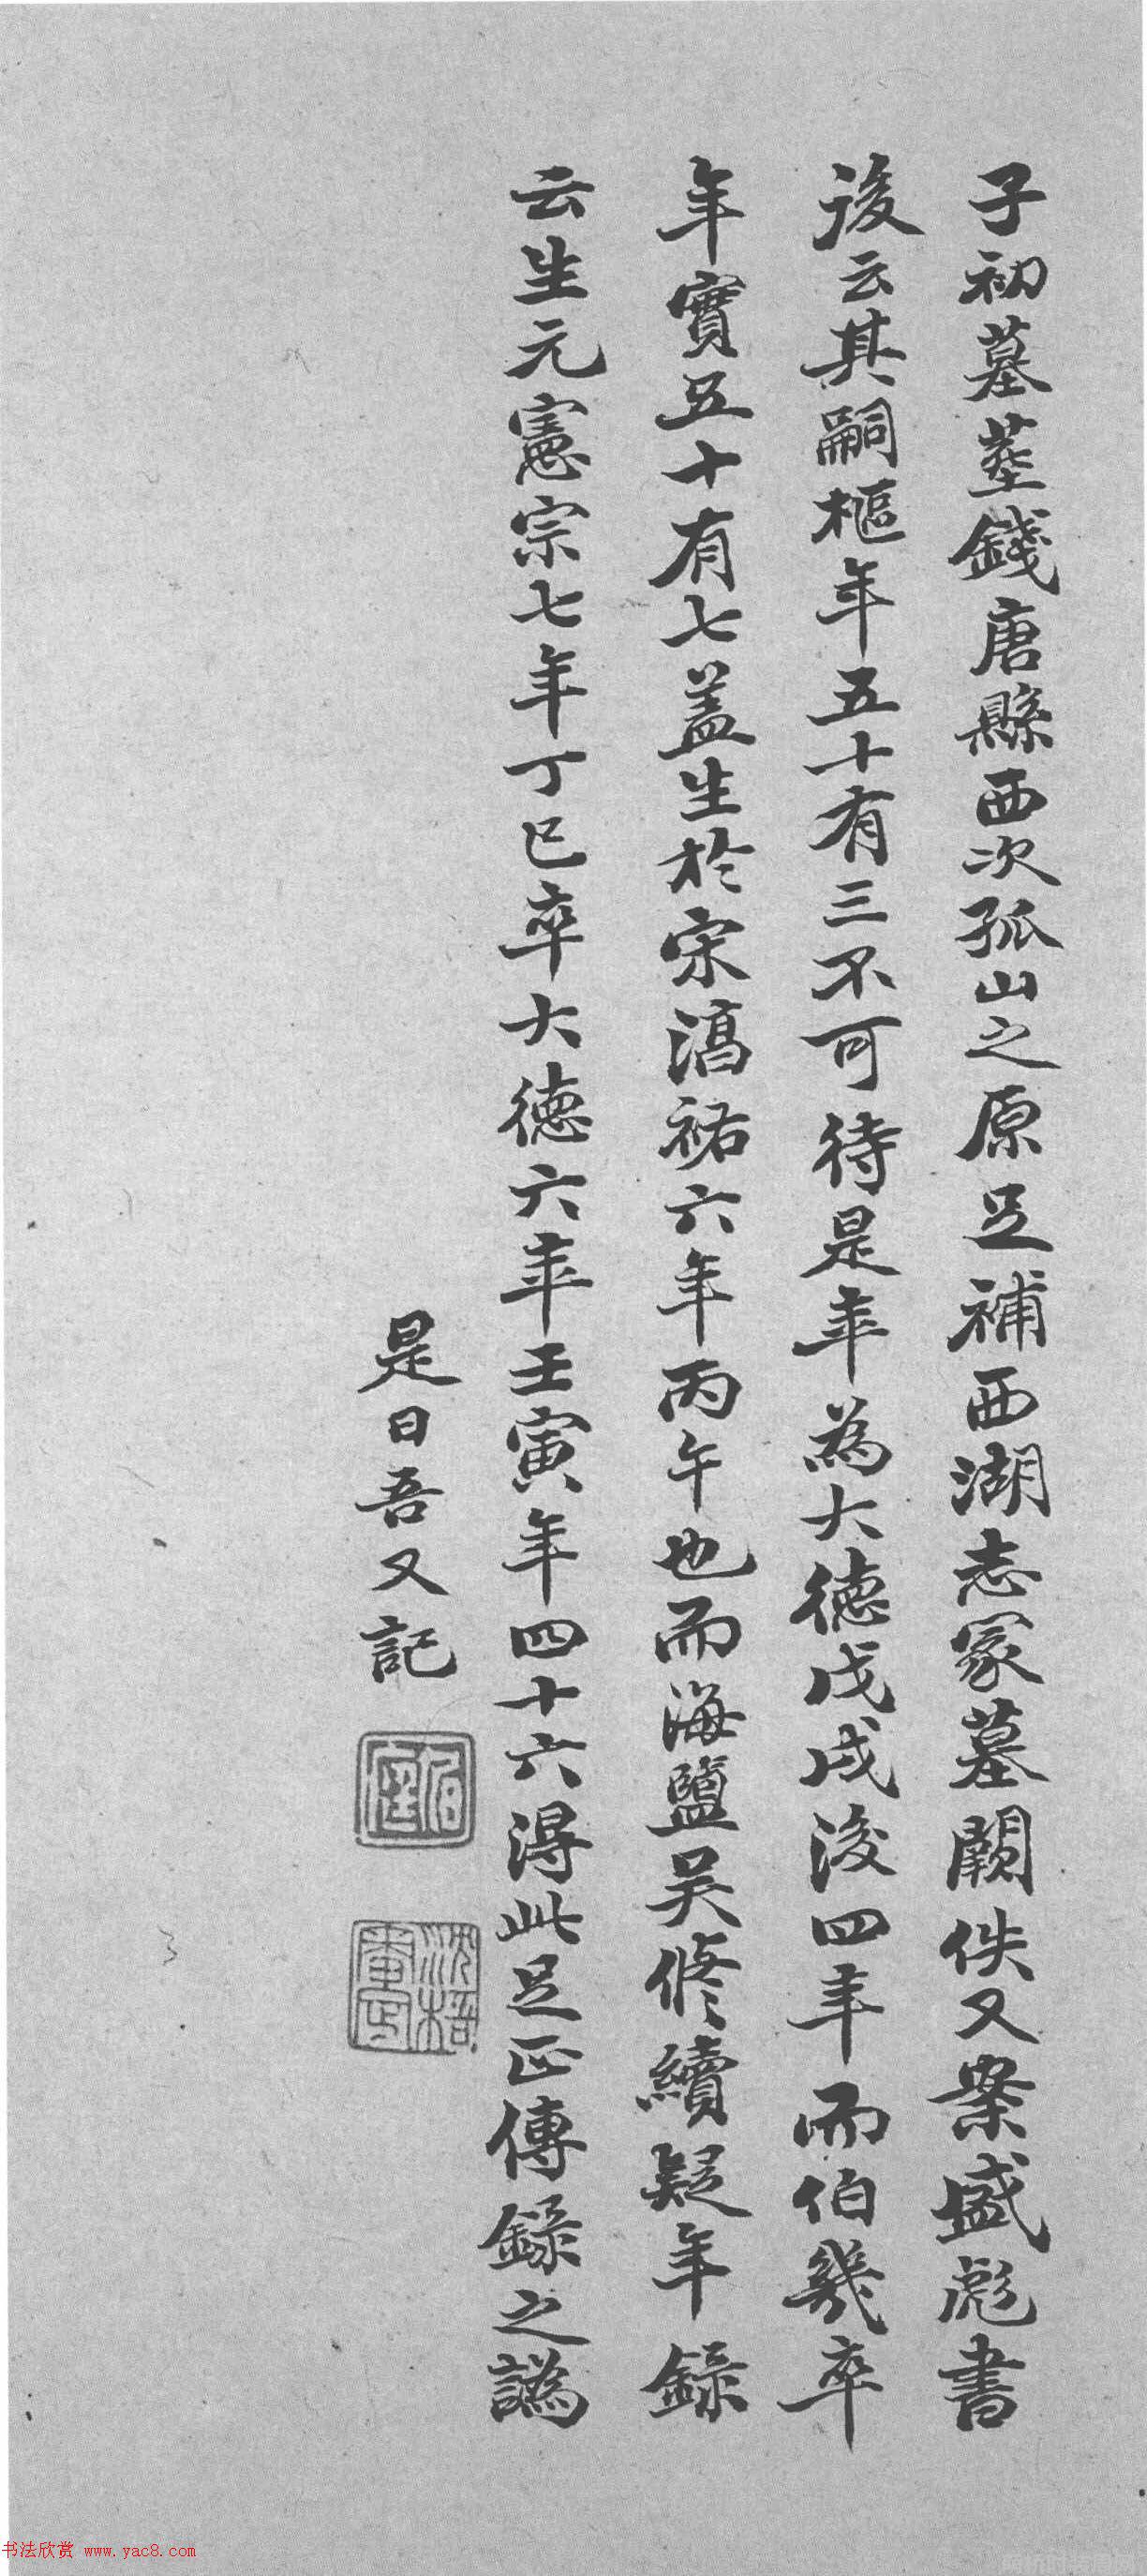 子初墓莖錢唐縣西次孤山之原足補西湖志冢墓闕佚又案盛彪書
後云其嗣樞年五十有三不可待是年為大德戊戌後四年而伯幾卒
年實五十有七蓋生於宋淳祐六年丙午也而海鹽吳修續疑年錄
云生元憲宗七年丁巳卒大德六年壬寅年四十六得此足正傳錄之譌
是日吾又記
沈梧
书法欣赏 www.yac8.com